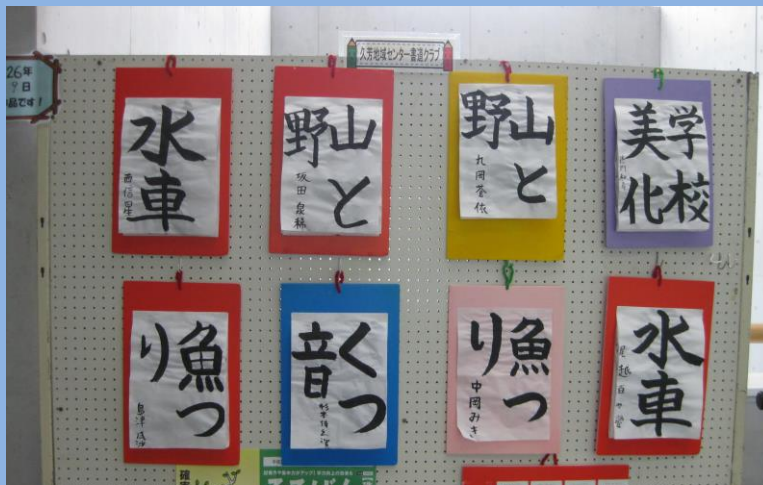 久芳地域センター書道クラブ
26年
日
品です!
水車
西信星
山と
野
坂田泉穂
山と
野
九岡蒼依
学校
美化
魚つ
り
島津成沙
くつ
音
魚つ
り
中岡みき
水車